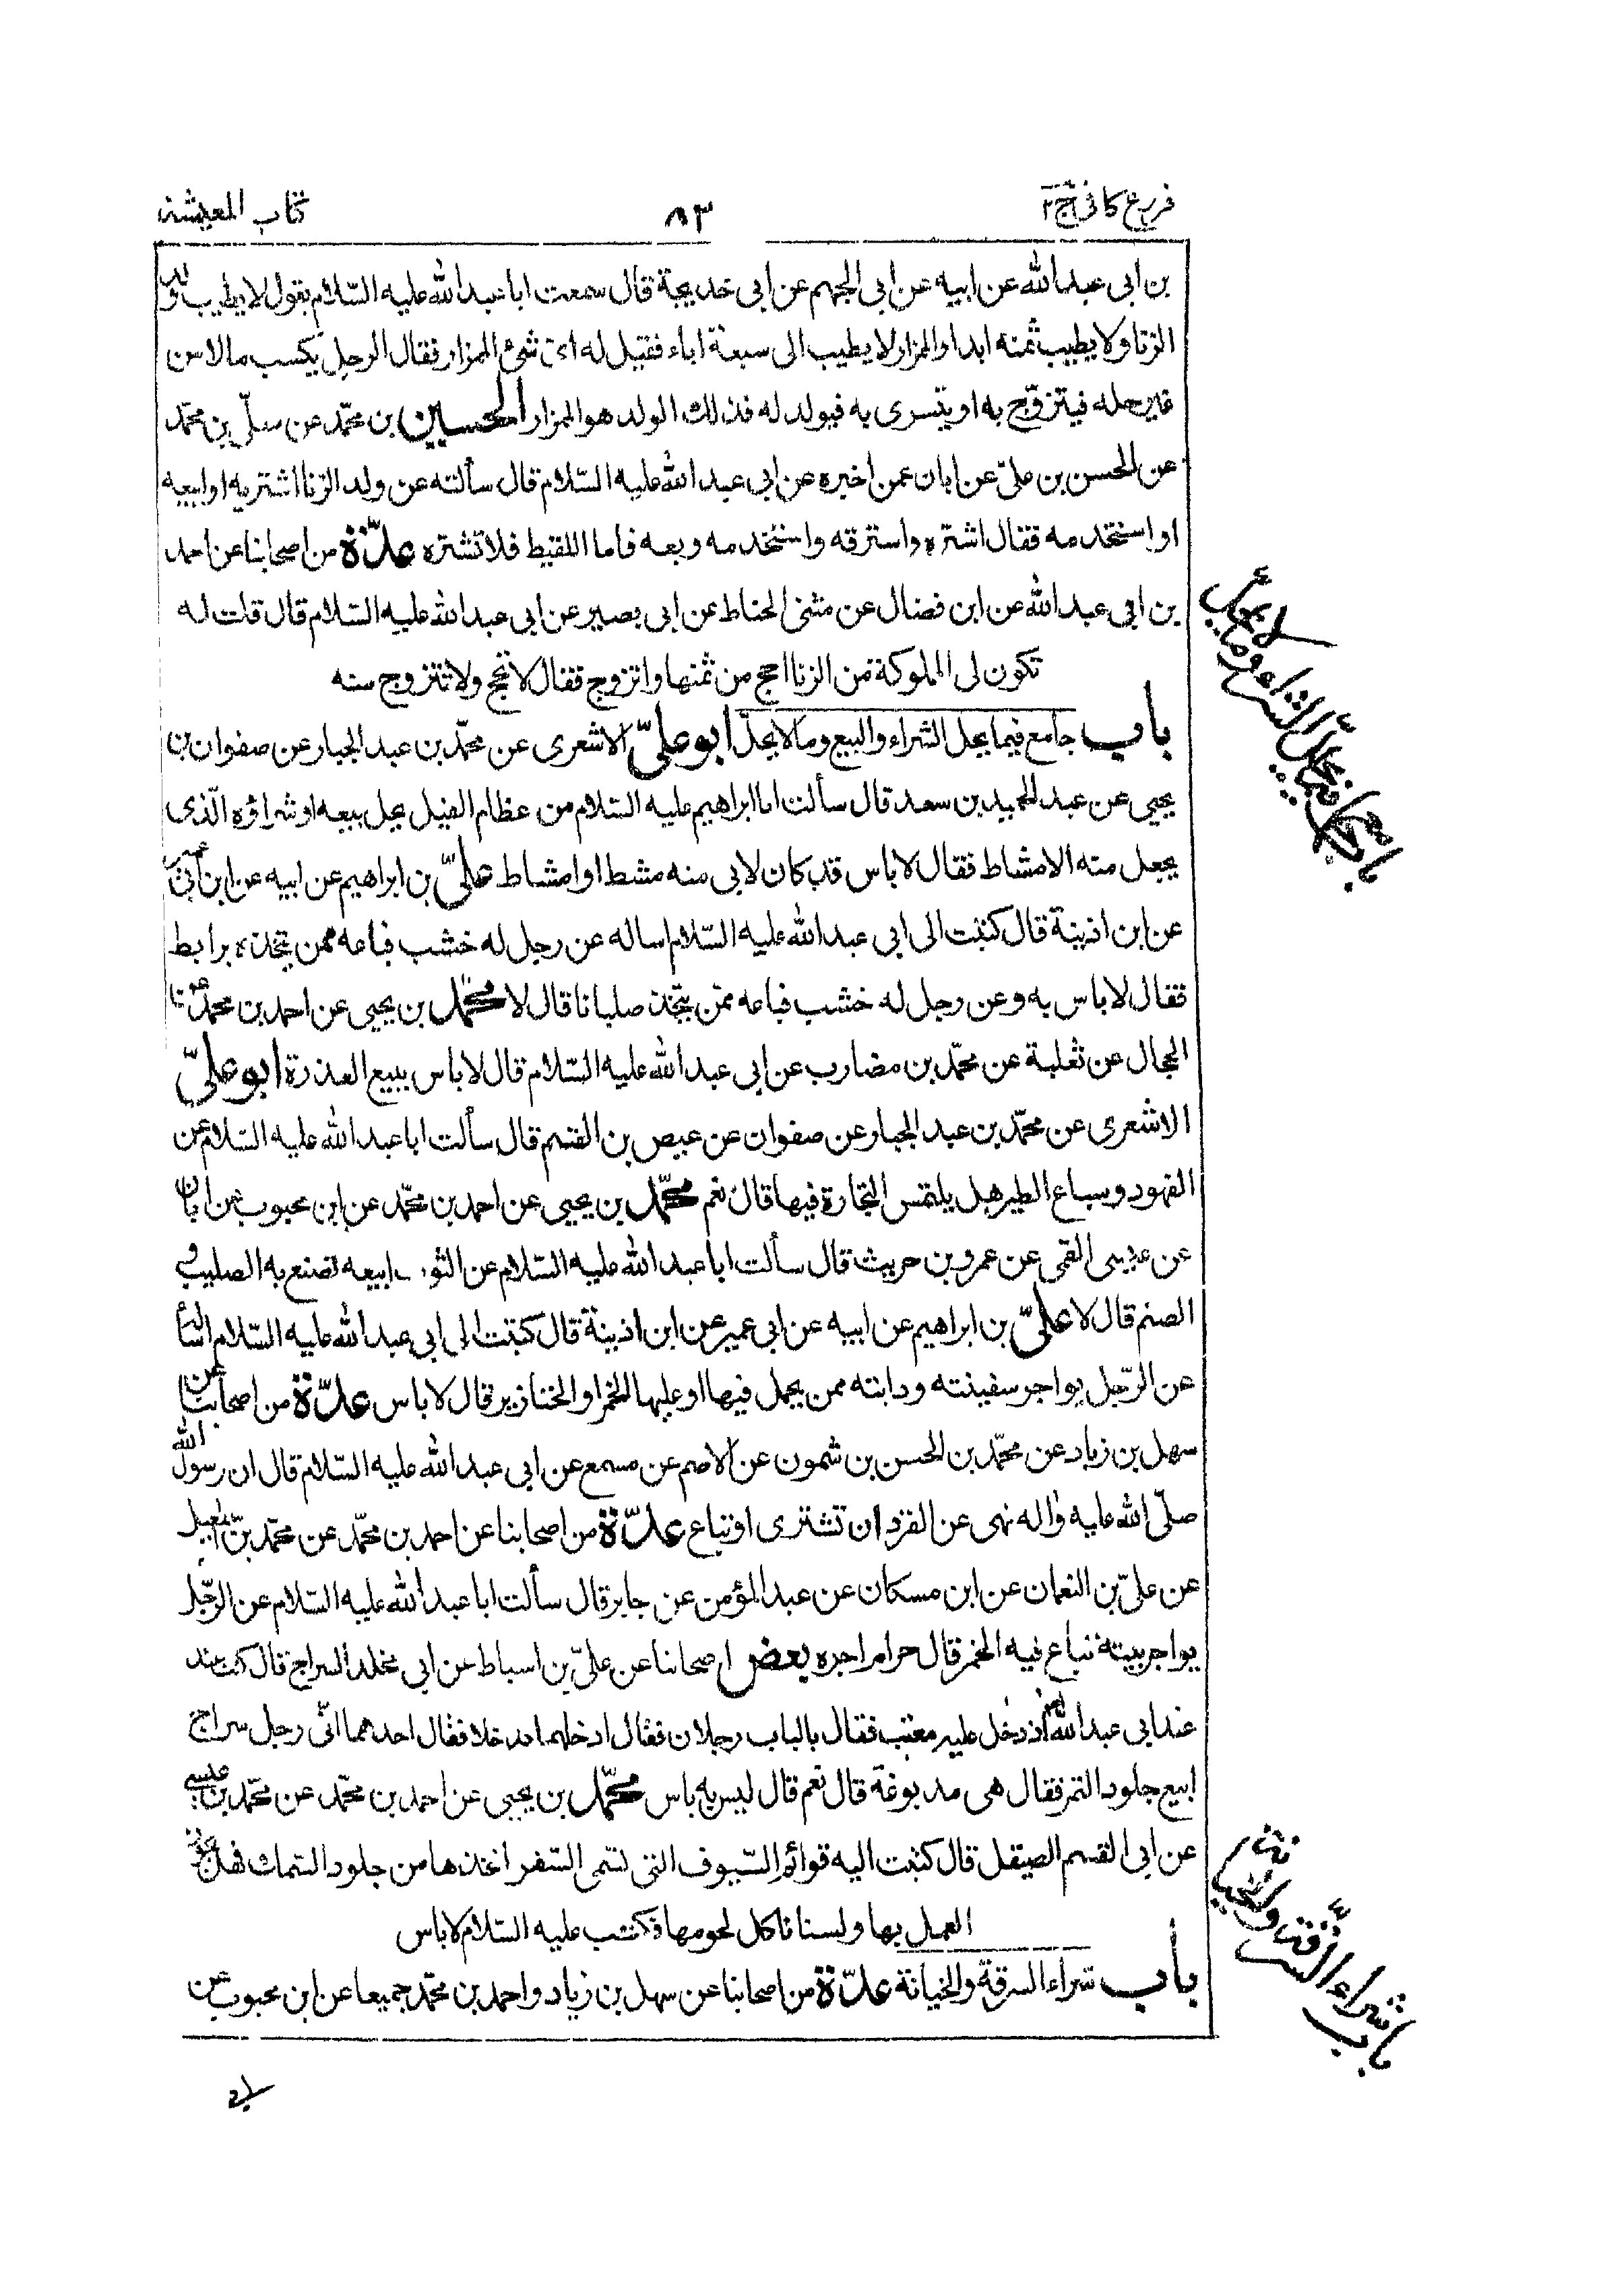 فروع كافى ج٢ ٨٣ كتاب المعيشة
بن ابى عبد الله عن ابيه عن ابى الجهم عن ابى خديجة قال سمعت ابا عبد الله عليه السّلام يقول لا يطيب ولد
الزنا ولا يطيب ثمنه ابدا والممزار لا يطيب الى سبعة اباء فقيل له اى شئ الممزار فقال الرجل يكسب مالا من
غير حله فيتزوّج به او يتسرى به فيولد له فذلك الولد هو الممزار الحسين بن محمّد عن معلّى بن محمّد
عن الحسن بن علىّ عن ابان عمن اخبره عن ابى عبد الله عليه السّلام قال سألته عن ولد الزنا اشتريه او ابيعه
او استخدمه فقال اشتره واسترقه واستخدمه وبعه فاما اللقيط فلا تشتره عدّة من اصحابنا عن احمد
بن ابى عبد الله عن ابن فضال عن مثنى الحناط عن ابى بصير عن ابى عبد الله عليه السّلام قال قلت له
تكون لى المملوكة من الزنا احج من ثمنها واتزوج فقال لا تحج ولا تتزوج منه
باب جامع فيما يحل الشراء والبيع وما لا يحلّ ابو علىّ الاشعرى عن محمّد بن عبد الجبار عن صفوان بن
يحيى عن عبد الحميد بن سعد قال سألت ابا ابراهيم عليه السّلام عن عظام الفيل يحل بيعه او شراؤه الّذى
يجعل منه الامشاط فقال لا باس قد كان لابى منه مشط او امشاط علىّ بن ابراهيم عن ابيه عن ابن ابى عمير
عن ابن اذينة قال كتبت الى ابى عبد الله عليه السّلام اساله عن رجل له خشب فباعه ممن يتخذه برابط
فقال لا باس به وعن رجل له خشب فباعه ممّن يتخذ صلبانا قال لا محمّد بن يحيى عن احمد بن محمّد عن
الحجال عن ثعلبة عن محمّد بن مضارب عن ابى عبد الله عليه السّلام قال لا باس ببيع العذرة ابو علىّ
الاشعرى عن محمّد بن عبد الجبار عن صفوان عن عيص بن القسم قال سألت ابا عبد الله عليه السّلام عن
الفهود وسباع الطير هل يلتمس التجارة فيها قال نعم محمّد بن يحيى عن احمد بن محمّد عن ابن محبوب عن ابان
عن عيسى القمى عن عمرو بن حريث قال سألت ابا عبد الله عليه السّلام عن التوت ابيعه تصنع به الصليب و
الصنم قال لا علىّ بن ابراهيم عن ابيه عن ابى عمير عن ابن اذينة قال كتبت الى ابى عبد الله عليه السّلام اسأله
عن الرّجل يواجر سفينته ودابته ممن يحمل فيها او عليها الخمر او الخنازير قال لا باس عدّة من اصحابنا عن
سهل بن زياد عن محمّد بن الحسن بن شمون عن الاصم عن مسمع عن ابى عبد الله عليه السّلام قال ان رسول الله
صلّى الله عليه واله نهى عن القرد ان تشترى او تباع عدّة من اصحابنا عن احمد بن محمّد عن محمّد بن اسمعيل
عن علىّ بن النعمان عن ابن مسكان عن عبد المؤمن عن جابر قال سألت ابا عبد الله عليه السّلام عن الرّجل
يواجر بيته تباع فيه الخمر قال حرام اجره بعض اصحابنا عن علىّ بن اسباط عن ابى مخلد السراج قال كنت عند
عند ابى عبد الله اذ دخل عليه معتب فقال بالباب رجلان فقال ادخلهما فدخلا فقال احدهما انّى رجل سراج
ابيع جلود النمر فقال هى مدبوغة قال نعم قال ليس به باس محمّد بن يحيى عن احمد بن محمّد عن محمّد بن عيسى
عن ابى القسم الصيقل قال كتبت اليه قوائم السّيوف التى تسّمى السّفر اتخذها من جلود السّمك فهل يجوز
العمل بها ولسنا ناكل لحومها فكتب عليه السّلام لا باس
باب شراء السرقة والخيانة عدّة من اصحابنا عن سهل بن زياد واحمد بن محمّد جميعا عن ابن محبوب عن
باب جامع فيما يحلّ الشراء وما لا يحلّ
باب شراء السّرقة والخيانة